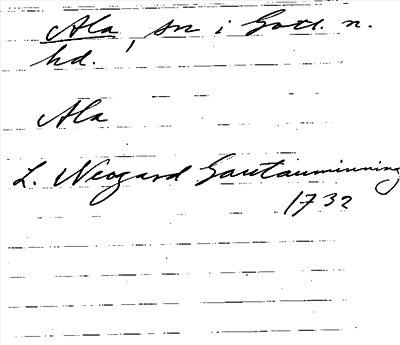 Ala, sn i Gotl. n.
hd.
Ala
L. Neogard Gautauminning
1732